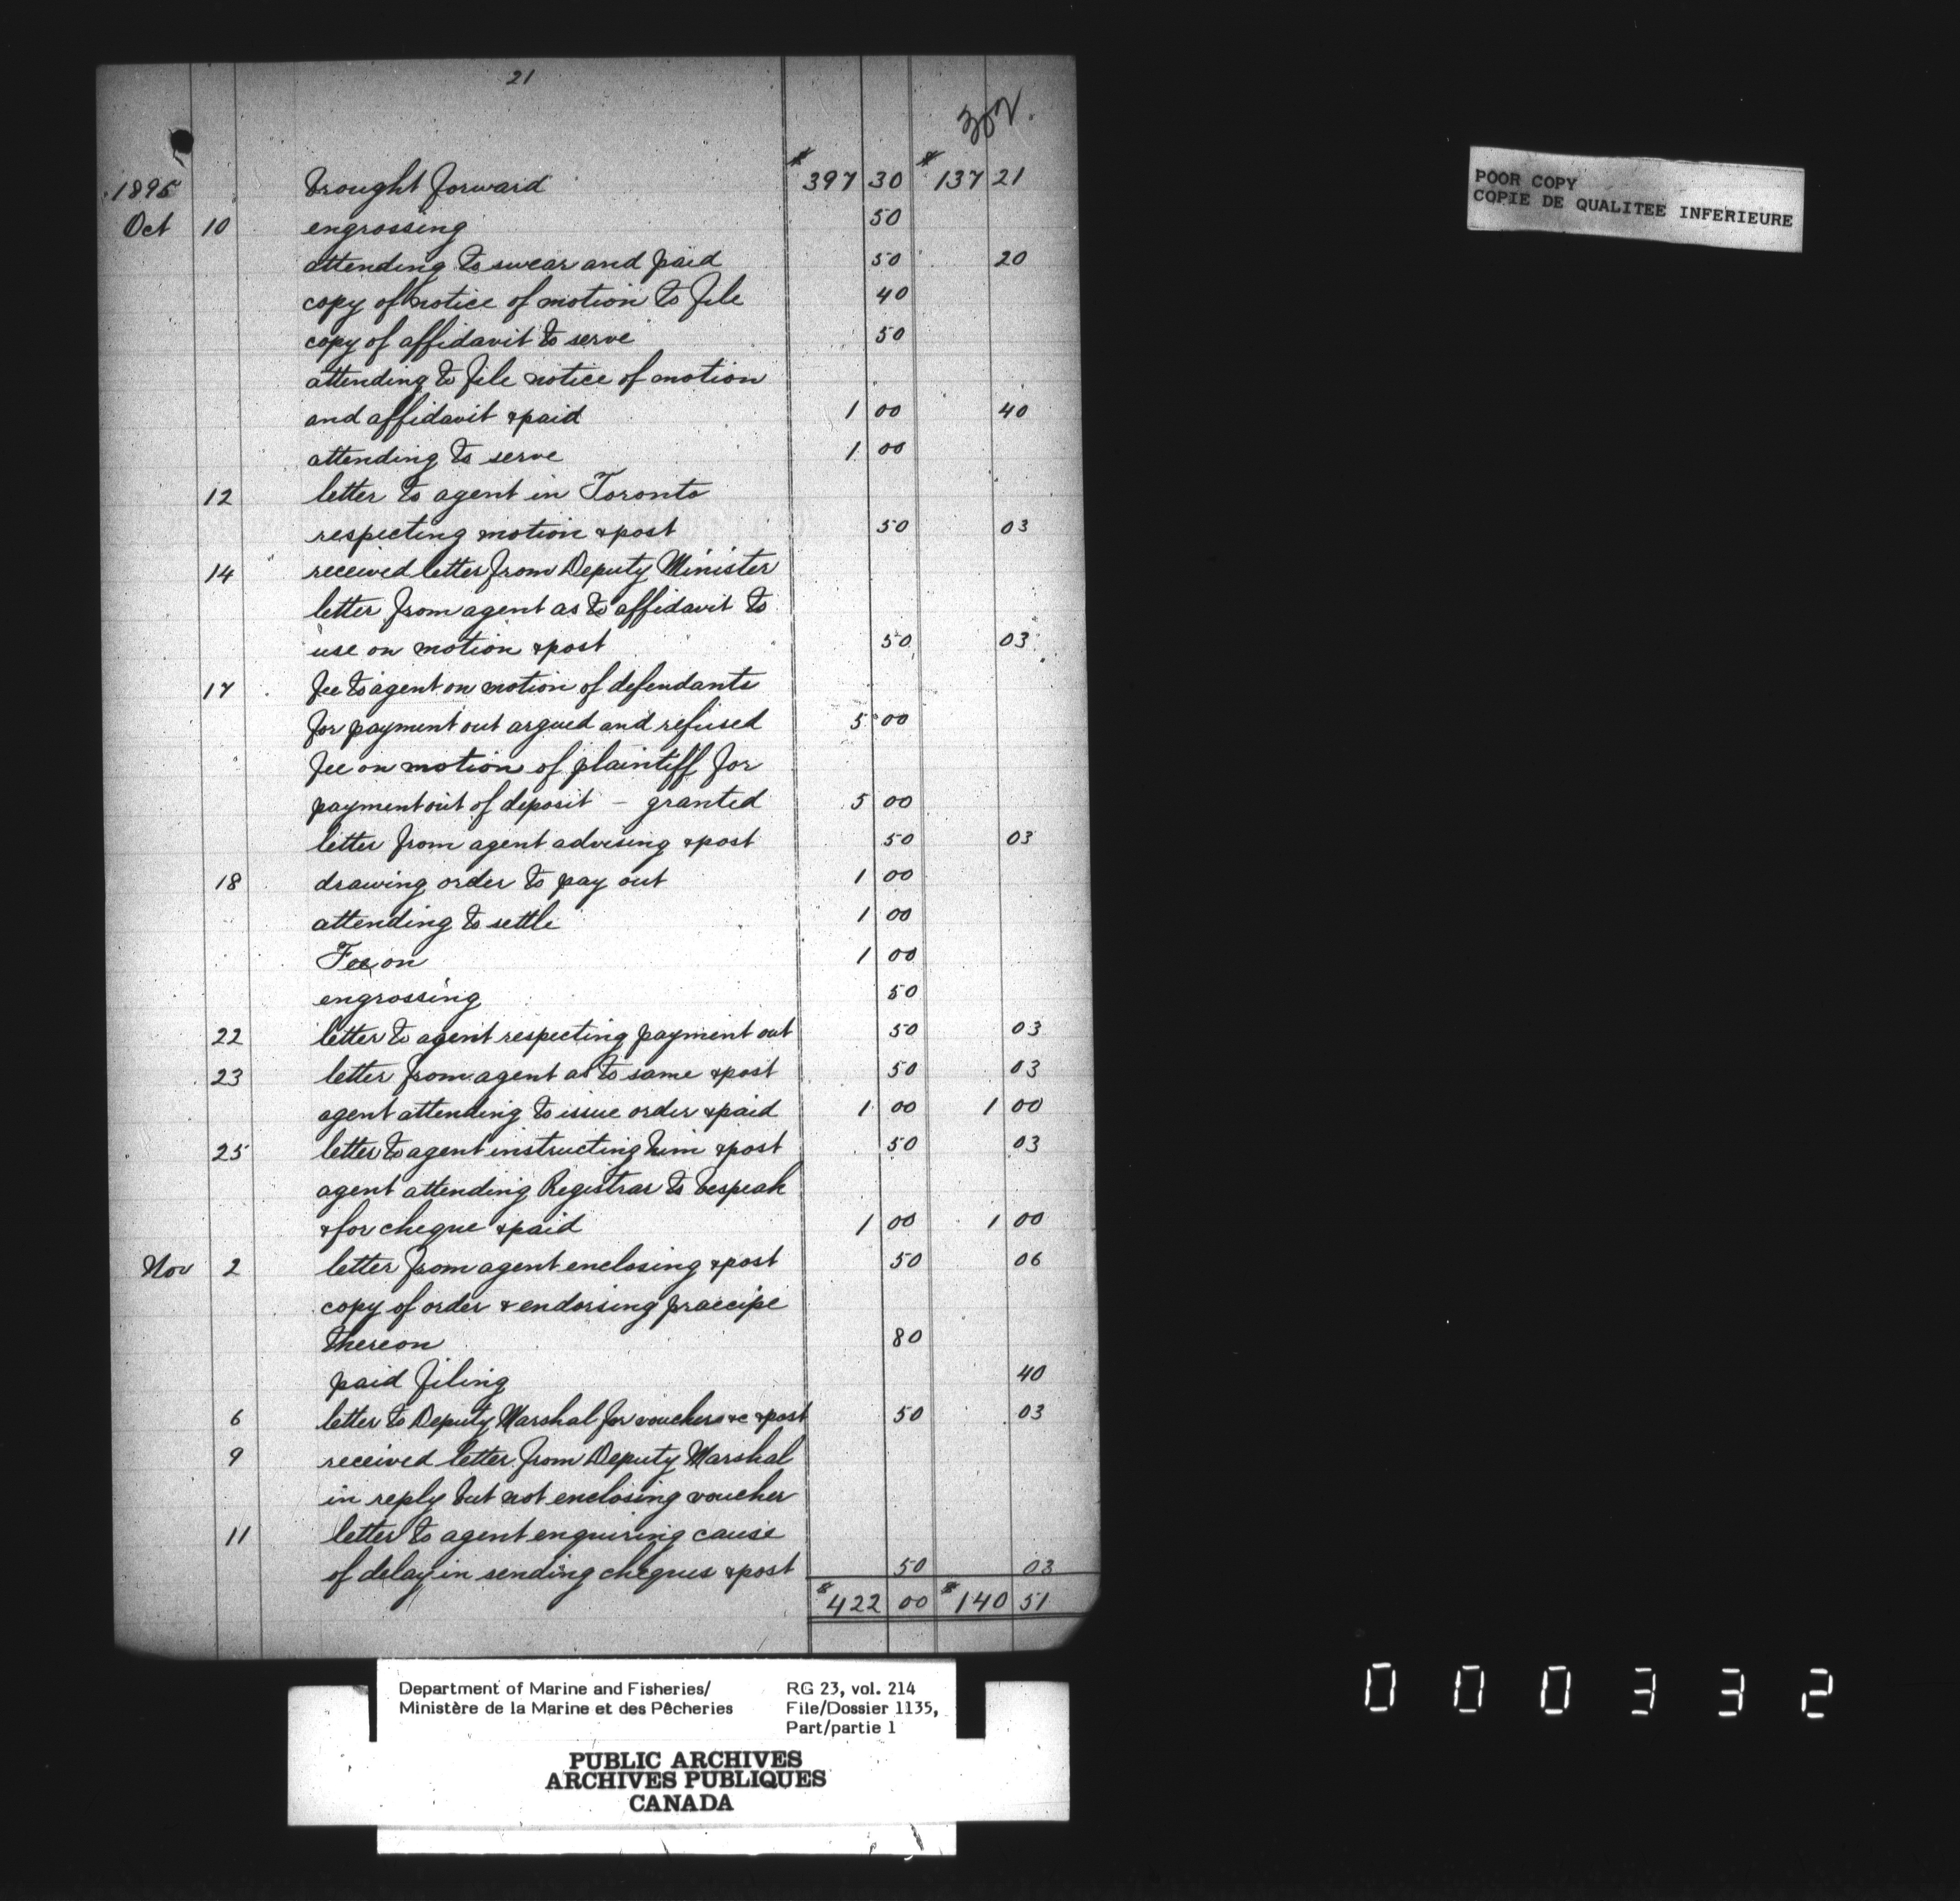 21
302.
1895 brought forward $397 30 $137 21
Oct 10 engrossing 50
attending to swear and paid 50 20
copy of notice of motion to file 40
copy of affidavit to serve 50
attending to file notice of motion
and affidavit & paid 1 00 40
attending to serve 1 00
12 letter to agent in Toronto
respecting motion & post 50 03
14 received letter from Deputy Minister
letter from agent as to affidavit to
use on motion & post 50 03
17 fee to agent on motion of defendants
for payment out argued and refused 5 00
fee on motion of plaintiff for
payment out of deposit - granted 5 00
letter from agent advising & post 50 03
18 drawing order to pay out 1 00
attending to settle 1 00
Fee on 1 00
engrossing 50
22 letter to agent respecting payment out 50 03
23 letter from agent as to same & post 50 03
agent attending to issue order & paid 1 00 1 00
25 letter to agent instructing him & post 50 03
agent attending Registrar to bespeak
& for cheque & paid 1 00 1 00
Nov 2 letter from agent enclosing & post 50 06
copy of order & endorsing praecipe
thereon 80
paid filing 40
6 letter to Deputy Marshal for vouchers &c & post 50 03
9 received letter from Deputy Marshal
in reply but not enclosing voucher
11 letter to agent enquiring cause
of delay in sending cheques & post 50 03
$422 00 $140 51
POOR COPY
COPIE DE QUALITEE INFERIEURE
Department of Marine and Fisheries/
Ministère de la Marine et des Pêcheries
RG 23, vol. 214
File/Dossier 1135,
Part/partie 1
PUBLIC ARCHIVES
ARCHIVES PUBLIQUES
CANADA
000332